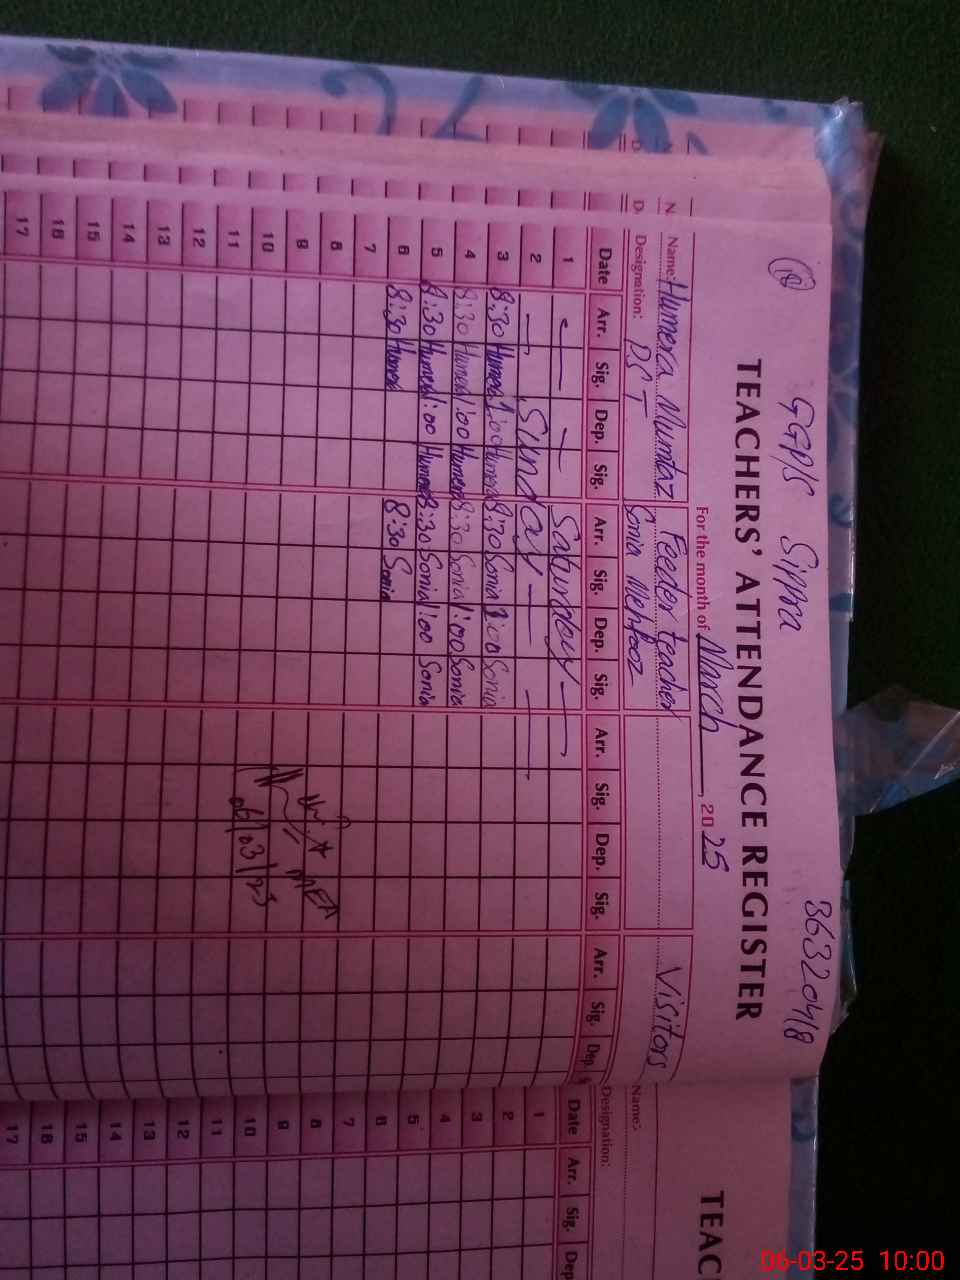 (18) GGPS Sippra 36320418
TEACHERS' ATTENDANCE REGISTER
For the month of March, 2025
Name: Humera Mumtaz Feeder teacher Visitors
Designation: PST Sonia Mehfooz
Date Arr. Sig. Dep. Sig. Arr. Sig. Dep. Sig. Arr. Sig. Dep. Sig. Arr. Sig. Dep. S
1 Saturday
2 Sunday
3 8:30 Humera 1:00 Humera 8:30 Sonia 1:00 Sonia
4 8:30 Humera 1:00 Humera 8:30 Sonia 1:00 Sonia
5 8:30 Humera 1:00 Humera 8:30 Sonia 1:00 Sonia
6 8:30 Humera 8:30 Sonia
7
8
9 MEA
10
11 06/03/25
12
13
14
15
16
17
TEAC
Name:
Designation:
Date Arr. Sig. Dep
1
2
3
4
5
6
7
8
9
10
11
12
13
14
15
16
17
06-03-25 10:00